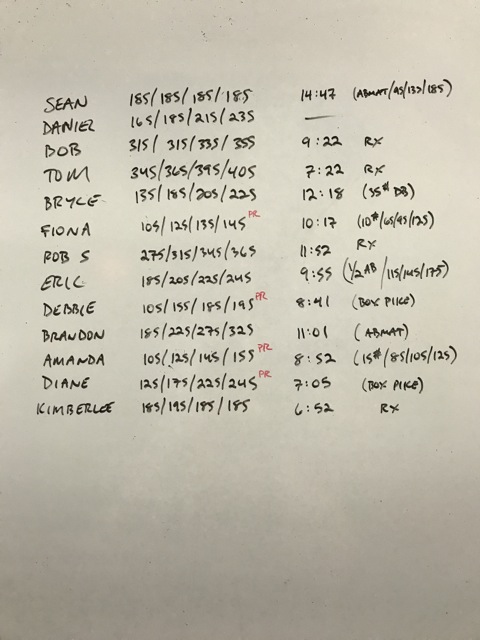 SEAN 185/185/185/185 14:47 (ABMAT/95/135/185)
DANIEL 165/185/215/235 —
BOB 315/315/335/355 9:22 RX
TOM 345/365/395/405 7:22 RX
BRYCE 135/185/205/225 12:18 (35# DB)
FIONA 105/125/135/145 PR 10:17 (10#/65/95/125)
ROB S 275/315/345/365 11:52 RX
ERIC 185/205/225/245 9:55 (1/2 AB/115/145/175)
DEBBIE 105/155/185/195 PR 8:41 (BOX PIKE)
BRANDON 185/225/275/325 11:01 (ABMAT)
AMANDA 105/125/145/155 PR 8:52 (15#/85/105/125)
DIANE 125/175/225/245 PR 7:05 (BOX PIKE)
KIMBERLEE 185/195/185/185 6:52 RX